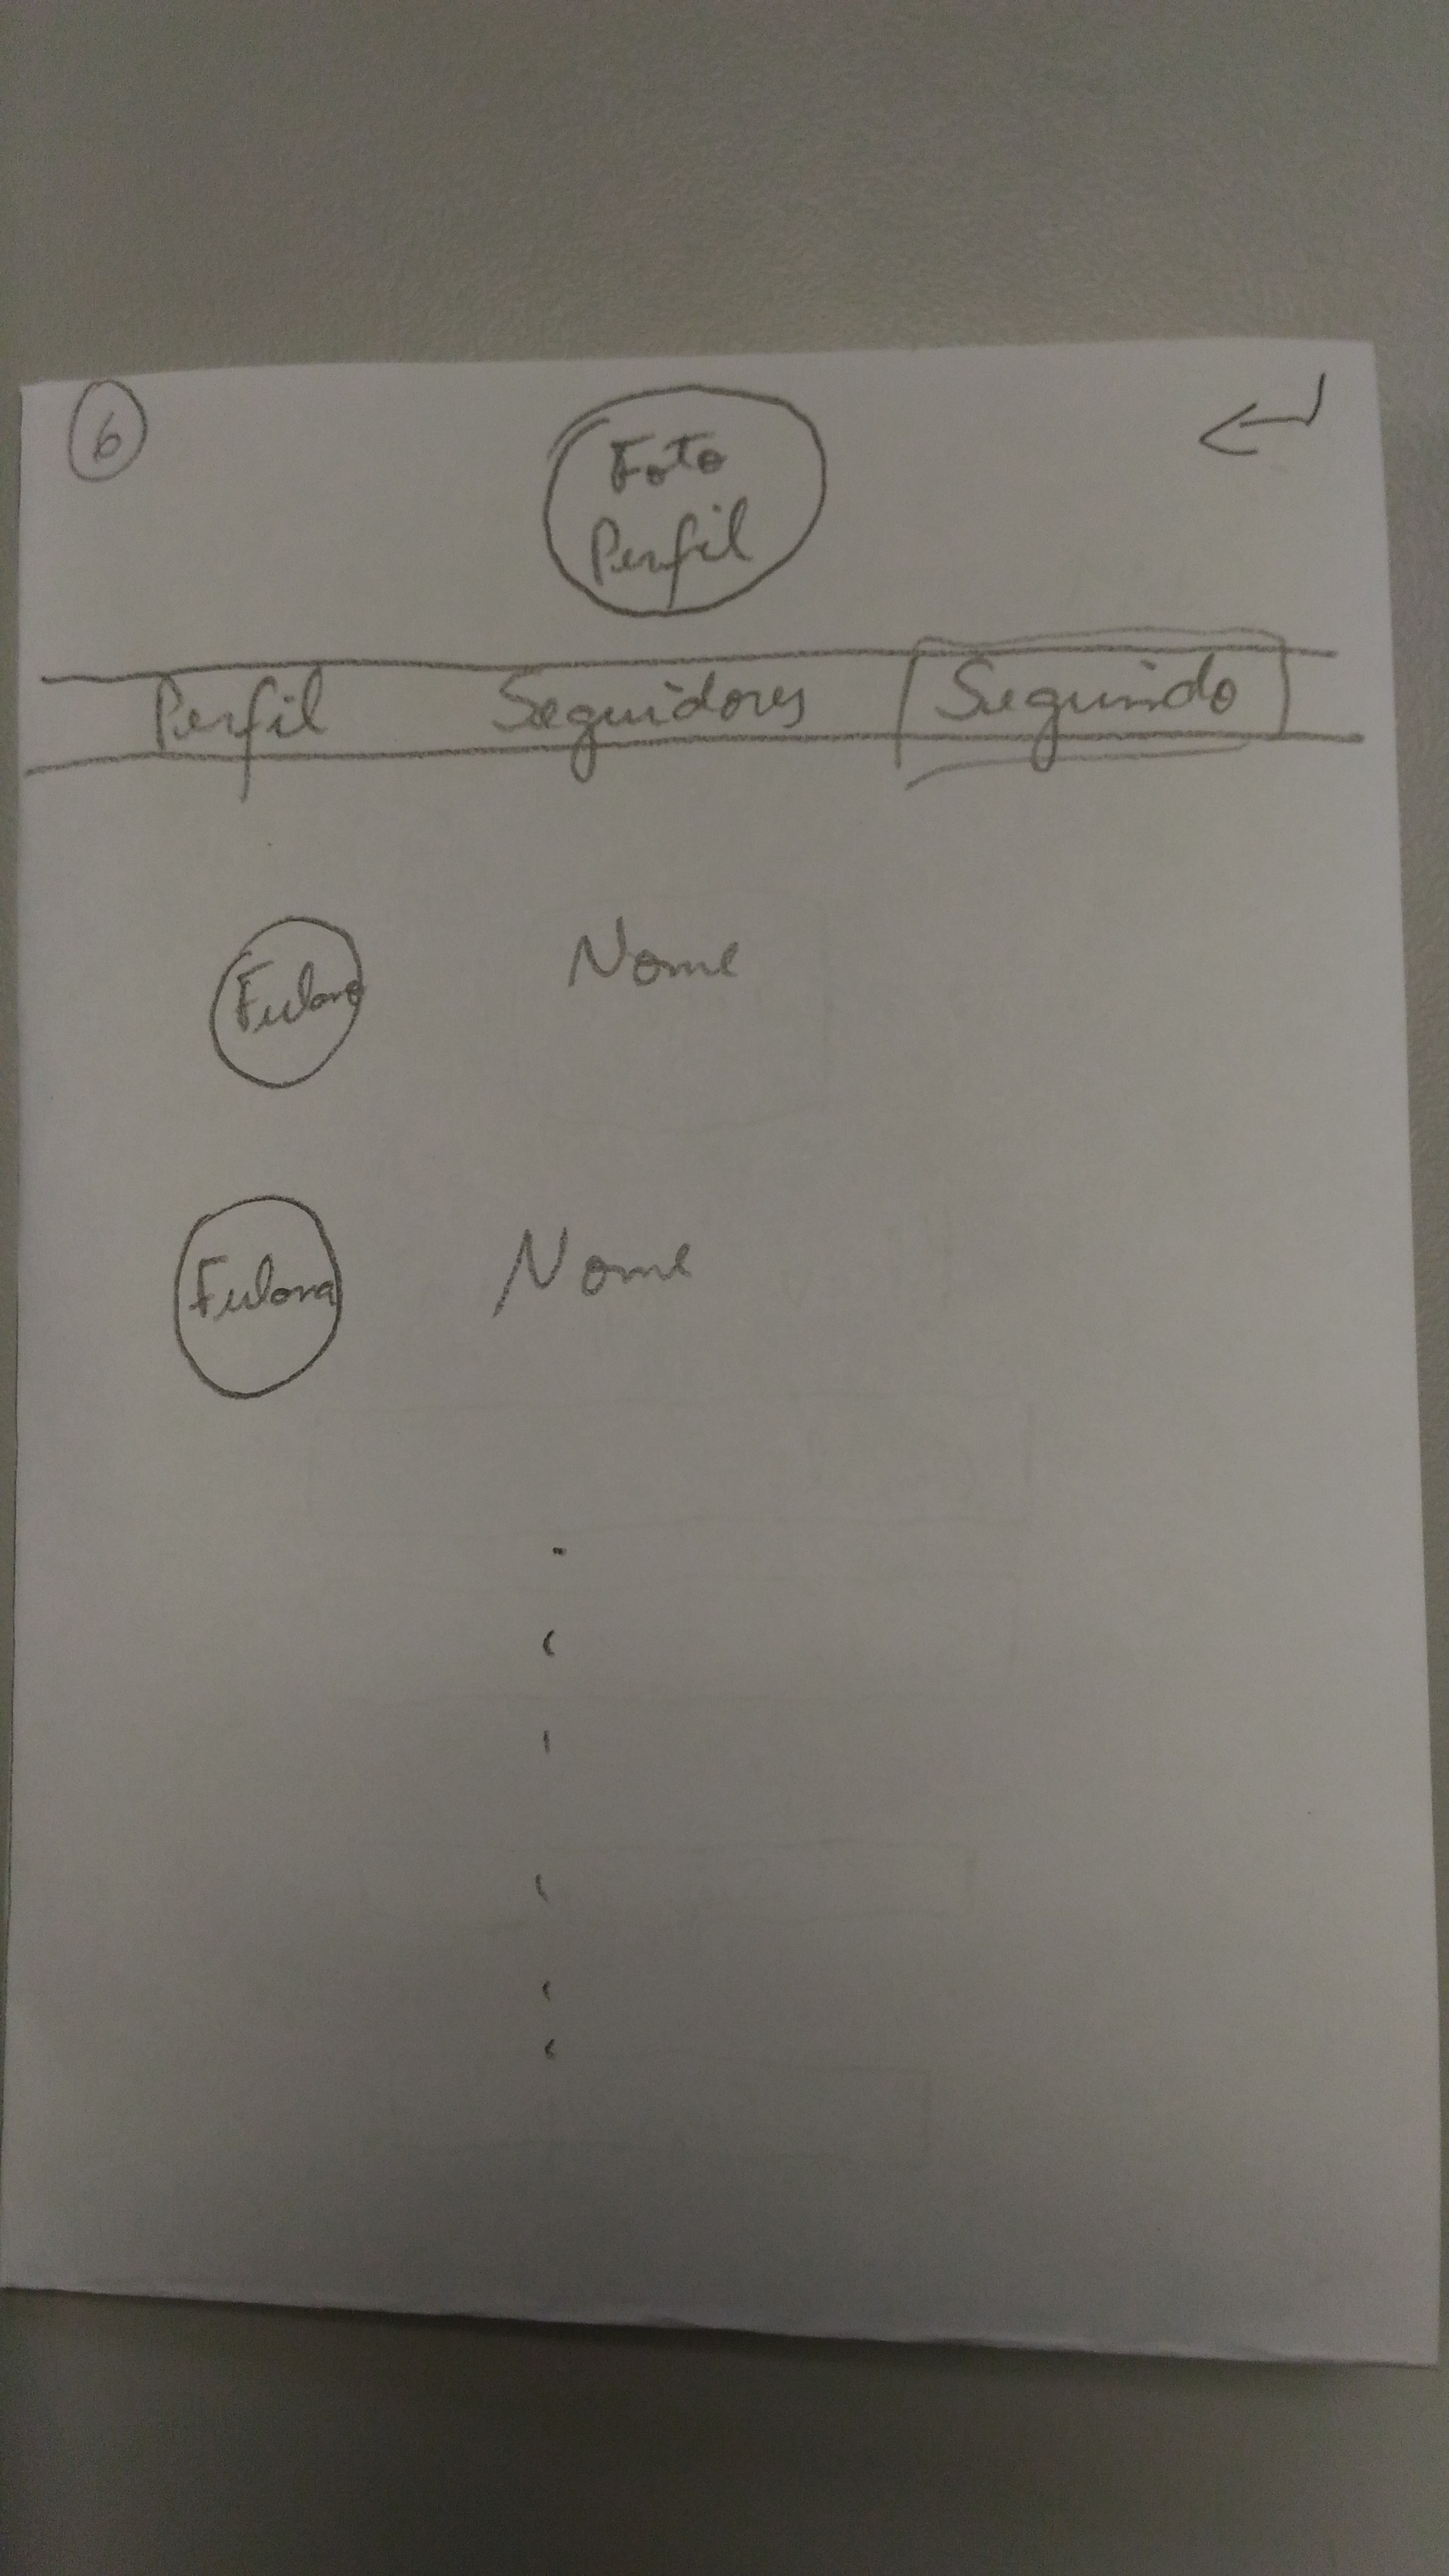 6
Foto
Perfil
Perfil Seguidores Seguindo
Fulano Nome
Fulana Nome